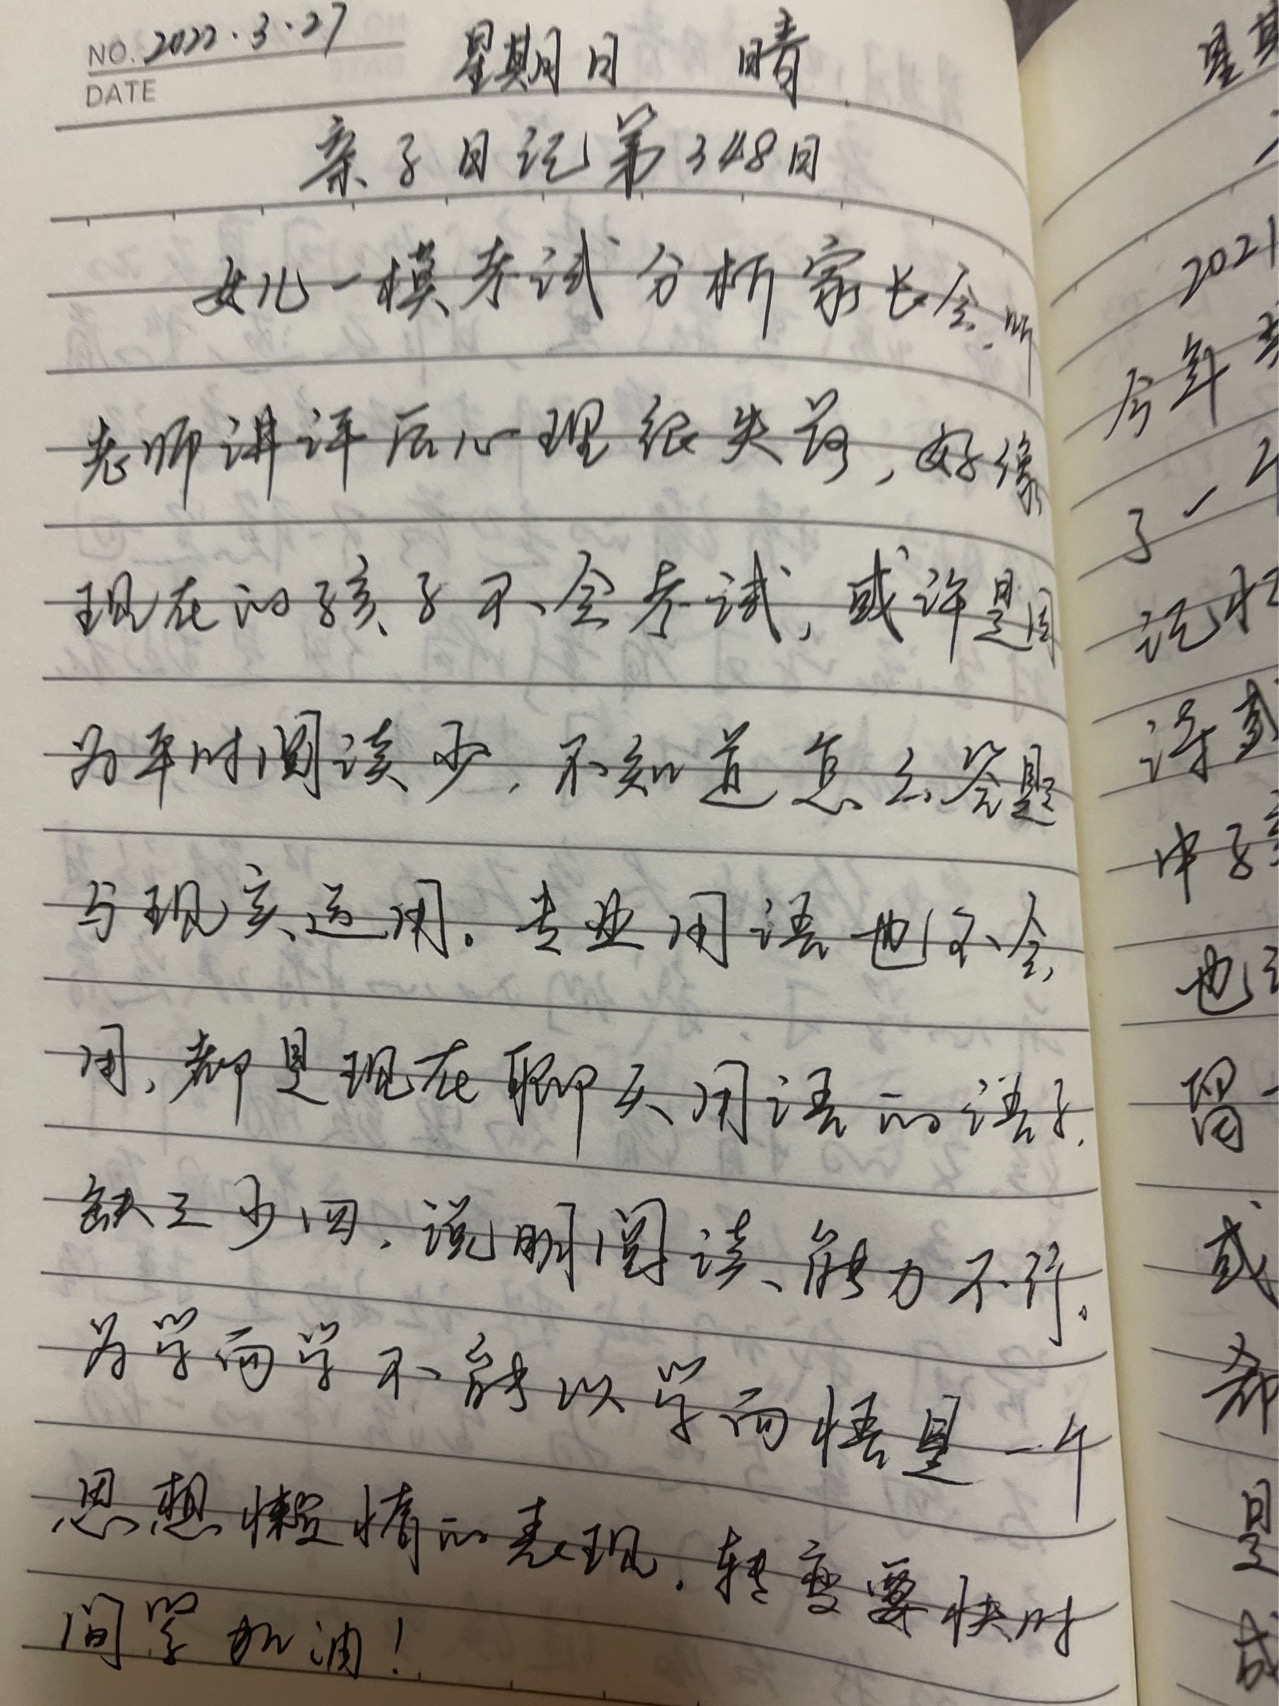 NO. 2022.3.27
DATE
星期日 晴
亲子日记第348日
女儿一模考试分析家长会,听
老师讲评后心理很失落,好像
现在的孩子不会考试,或许是因
为平时阅读少,不知道怎么答题
与现实运用。专业用语也不会
用,都是现在聊天用语的语言,
缺三少四,说明阅读、能力不行。
为学而学不能以学而悟是一个
思想懒惰的表现,转变要快时
间学加油!
星期
2021
今年
了一
记忆
译或
中子
也
留
或
都
是
成